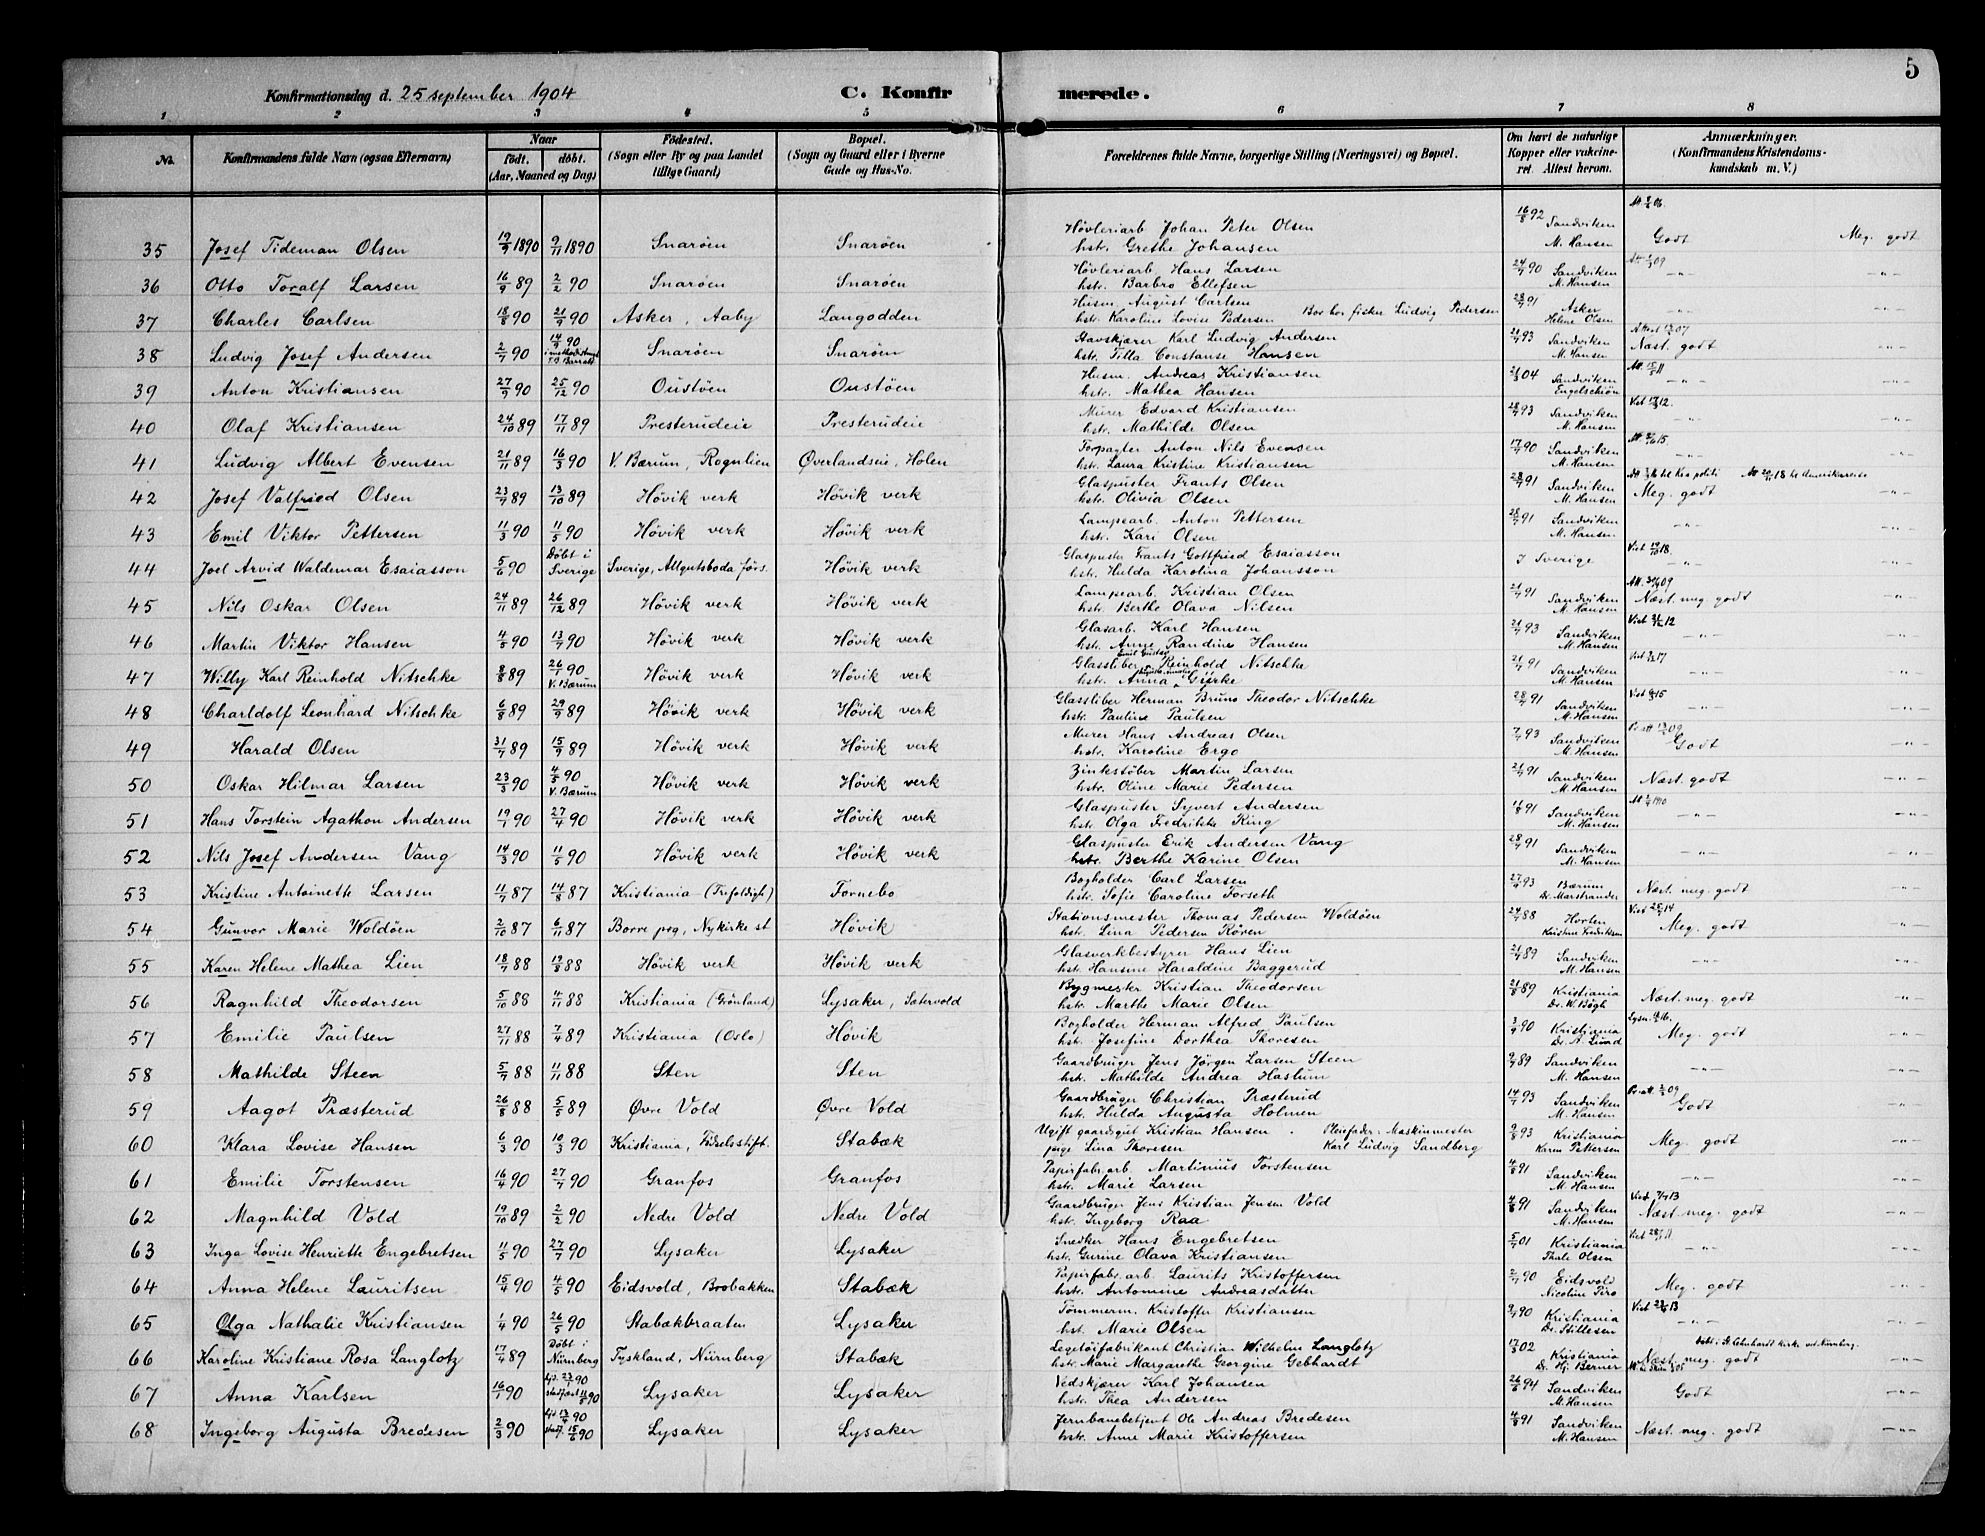 5
Konfirmationsdag d. 25 september 1904 C. Konfirmerede.
1 2 3 4 5 6 7 8
No. Konfirmandens fulde Navn (ogsaa Efternavn) Naar født. døbt. (Aar, Maaned og Dag) Fødested. (Sogn eller By og paa Landet tillige Gaard) Bopæl. (Sogn og Gaard eller i Byerne Gade og Hus-No. Forældrenes fulde Navne, borgerlige Stilling (Næringsvei) og Bopæl. Om havt de naturlige Kopper eller vakcineret. Attest herom. Anmærkninger. (Konfirmandens Kristendomskundskab m. V.)
35 Josef Tideman Olsen 19/9 1890 9/11 1890 Snarøen Snarøen Høvleriarb Johan Peter Olsen hstr. Grethe Johansen 16/8 92 Sandviken M. Hansen Godt Meg. godt
36 Otto Toralf Larsen 16/9 89 2/2 90 Snarøen Snarøen Høvleriarb Hans Larsen hstr. Barbro Ellefsen 24/7 90 Sandviken M. Hansen -"- -"-
37 Charles Carlsen 18/8 90 21/9 90 Asker, Aaby Langodden Husm. August Carlsen hstr. Karoline Lovise Pedersen Bor hos fisker Ludvig Pedersen 28/7 91 Asker Helene Olsen -"- -"-
38 Ludvig Josef Andersen 2/7 90 14/9 90 Snarøen Snarøen Gavskjærer Karl Ludvig Andersen hstr. Tilla Constanse Hansen 21/7 93 Sandviken M. Hansen Næst. godt -"-
39 Anton Kristiansen 27/9 90 25/12 90 Oustøen Oustøen Husm. Andreas Kristiansen hstr. Mathea Hansen 21/3 04 Sandviken Engelschiøn -"- -"-
40 Olaf Kristiansen 24/10 89 17/11 89 Presterudeie Presterudeie Murer Edvard Kristiansen hstr. Mathilde Olsen 28/7 93 Sandviken M. Hansen -"- -"-
41 Ludvig Albert Evensen 21/11 89 16/3 90 V. Bærum, Rognlien Øverlandseie, Holen Forpagter Anton Nils Evensen hstr. Laura Kristine Kristiansen 17/7 90 Sandviken M. Hansen -"- -"-
42 Josef Valfried Olsen 23/7 89 13/10 89 Høvik verk Høvik verk Glaspuster Frants Olsen hstr. Olivia Olsen 28/7 91 Sandviken M. Hansen Meg. godt -"-
43 Emil Viktor Pettersen 11/3 90 11/5 90 Høvik verk Høvik verk Lampearb. Anton Pettersen hstr. Kari Olsen 28/7 91 Sandviken M. Hansen -"- -"-
44 Joel Arvid Waldemar Esaiasson 5/6 90 Døbt i Sverige Sverige, Allgutsboda førs. Høvik verk Glaspuster Frants Gottfried Esaiasson hstr. Hulda Karolina Johansson I Sverige -"- -"-
45 Nils Oskar Olsen 24/11 89 26/12 89 Høvik verk Høvik verk Lampearb. Kristian Olsen hstr. Berthe Olava Nilsen 21/7 91 Sandviken M. Hansen Næst meg godt -"-
46 Martin Viktor Hansen 4/5 90 13/7 90 Høvik verk Høvik verk Glasarb. Karl Hansen hstr. Anne Randine Hansen 21/7 93 Sandviken M. Hansen -"- -"-
47 Willy Karl Reinhold Nitschke 8/8 89 26/7 90 V. Bærum Høvik verk Høvik verk Glassliber Emil Gustav Reinhold Nitschke hstr. Anna Gürke 21/7 91 Sandviken M. Hansen -"- -"-
48 Charldolf Leonhard Nitschke 6/8 89 29/9 89 Høvik verk Høvik verk Glassliber Herman Bruno Theodor Nitschke hstr. Pauline Paulsen 28/7 91 Sandviken M. Hansen -"- -"-
49 Harald Olsen 31/7 89 15/9 89 Høvik verk Høvik verk Murer Hans Andreas Olsen hstr. Karoline Ergo 7/7 93 Sandviken M. Hansen Godt -"-
50 Oskar Hilmar Larsen 23/3 90 4/5 90 V. Bærum Høvik verk Høvik verk Zinkstøber Martin Larsen hstr. Oline Marie Pedersen 21/7 91 Sandviken M. Hansen Næst. godt -"-
51 Hans Torstein Agathon Andersen 19/1 90 27/4 90 Høvik verk Høvik verk Glaspuster Syvert Andersen hstr. Olga Fredrikke Ring 18/8 91 Sandviken M. Hansen -"- -"-
52 Nils Josef Andersen Vang 14/3 90 11/5 90 Høvik verk Høvik verk Glaspuster Erik Andersen Vang hstr. Berthe Karine Olsen 28/7 91 Sandviken M. Hansen -"- -"-
53 Kristine Antoinette Larsen 11/7 87 14/8 87 Kristiania (Trefoldigh) Fornebo Bogholder Carl Larsen hstr. Sofie Caroline Forseth 27/9 93 Bærum Dr. Marstrander Næst. meg. godt -"-
54 Gunvor Marie Woldøen 2/10 87 6/11 87 Borre pg, Nykirke st Høvik Stationsmester Thomas Pedersen Woldøen hstr. Lina Pedersen Røren 24/7 88 Horten Kristine Fredriksen Meg. godt -"-
55 Karen Helene Mathea Lien 18/7 88 19/8 88 Høvik verk Høvik verk Glasverkbestyrer Hans Lien hstr. Hansine Haraldine Baggerud 21/8 89 Sandviken M. Hansen -"- -"-
56 Ragnhild Theodorsen 5/10 88 4/11 88 Kristiania (Grønland) Lysaker, Sætervold Bygmester Kristian Theodorsen hstr. Marthe Marie Olsen 21/8 89 Kristiania Dr. W. Bøgh Næst. meg. godt -"-
57 Emilie Paulsen 27/11 88 7/4 89 Kristiania (Oslo) Høvik Bogholder Herman Alfred Paulsen hstr. Josefine Dorthea Thoresen 3/9 90 Kristiania Dr. A. Lund Meg. godt -"-
58 Mathilde Steen 5/7 88 11/11 88 Sten Sten Gaardbruger Jens Jørgen Larsen Steen hstr. Mathilde Andrea Haslum 2/7 89 Sandviken M. Hansen -"- -"-
59 Aagot Præsterud 26/8 88 5/5 89 Øvre Vold Øvre Vold Gaardbruger Christian Præsterud hstr. Hilda Augusta Holmen 14/7 93 Sandviken M. Hansen Godt -"-
60 Klara Lovise Hansen 6/3 90 10/3 90 Kristiania, Fødselsstift. Stabæk Ugift gaardsgut Kristian Hansen pige Lina Thoresen Pleiefader: Maskinmester Karl Ludvig Sandberg 9/8 93 Kristiania Karen Pettersen Meg. godt -"-
61 Emilie Torstensen 16/4 90 27/7 90 Granfos Granfos Papirfabr. arb. Martinius Torstensen hstr. Marie Larsen 4/8 91 Sandviken M. Hansen -"- -"-
62 Magnhild Vold 19/10 89 2/2 90 Nedre Vold Nedre Vold Gaardbruger Jens Kristian Jensen Vold hstr. Ingeborg Raa 4/8 91 Sandviken M. Hansen Næst meg. godt -"-
63 Inga Lovise Henriette Engebretsen 11/5 90 27/7 90 Lysaker Lysaker Snedker Hans Engebretsen hstr. Gurine Olava Kristiansen 5/7 01 Kristiania Thale Olsen -"- -"-
64 Anna Helene Lauritsen 15/4 90 4/5 90 Eidsvold, Brobakken Stabæk Papirfabr. arb. Laurits Kristoffersen hstr. Antomine Andreasdatter 2/7 90 Eidsvold Nicoline Piro Meg. godt -"-
65 Olga Nathalie Kristiansen 1/4 90 26/5 90 Stabækbraaten Lysaker Tømmerm. Kristoffer Kristiansen hst. Marie Olsen 9/7 90 Kristiania Dr. Stillesen -"- -"-
66 Karoline Kristiane Rosa Langlotz 17/4 89 Døbt i Nürnberg Tyskland, Nürnberg Stabæk Legetøifabrikant Christian Wilhelm Langlotz hstr. Marie Margarethe Georgine Gebhardt 17/3 02 Kristiania Dr. Hj. Berner Næst. meg. godt -"-
67 Anna Karlsen 16/1 90 Lysaker Lysaker Vedskjærer Karl Johansen hstr. Thea Andersen 26/6 94 Sandviken M. Hansen Godt -"-
68 Ingeborg Augusta Bredesen 2/3 90 Lysaker Lysaker Jernbanebetjent Ole Andreas Bredesen hstr. Anne Marie Kristoffersen 4/8 91 Sandviken M. Hansen Næst. meg. godt -"-